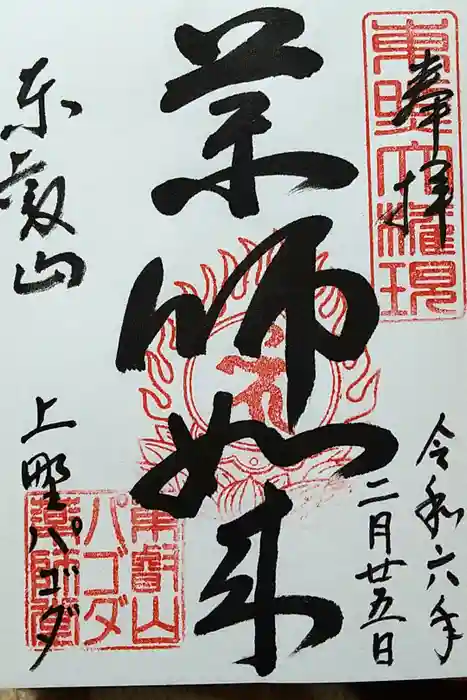 奉拝
東照大権現
令和六年
二月廿五日
薬師如来
東叡山
上野パゴダ
東叡山
パゴダ
薬師堂